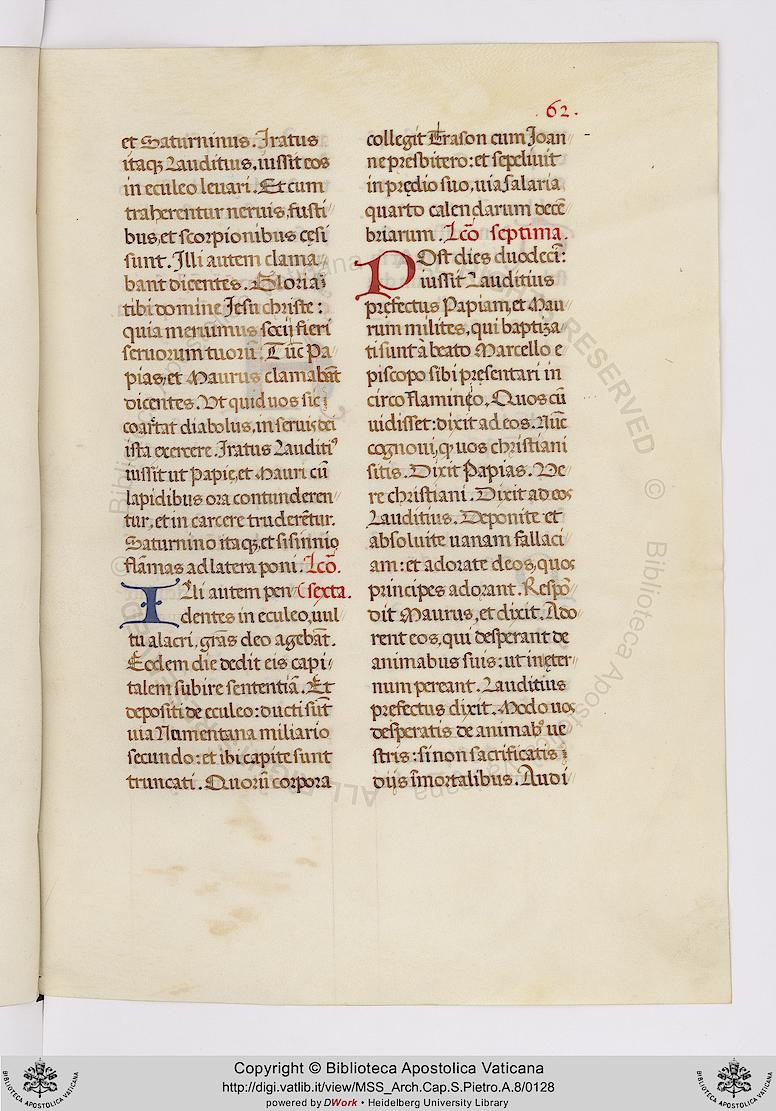 62.
et Saturninus. Iratus
itaqȝ Lauditius, iussit eos
in eculeo leuari. Et cum
traherentur neruis, fusti
bus, et scorpionibus cęsi
sunt. Illi autem clama
bant dicentes. Gloria
tibi domine Jesu christe:
quia meruimus socij fieri
seruorum tuorū. Tūc Pa
pias, et Maurus clamabāt
dicentes. Vt quid uos sic
coar̄tat diabolus, in seruis dei
ista exercere. Iratus Lauditiꝰ
iussit ut Papię, et Mauri cū
lapidibus ora contunderen
tur, et in carcere truderētur.
Saturnino itaqȝ, et sisinnio
flāmas ad latera poni. Lcō.
Illi autem pen sexta.
dentes in eculeo, uul
tu alacri, grās deo agebāt.
Eodem die dedit eis capi
talem subire sententiā. Et
depositi de eculeo: ducti sūt
uia Numentana miliario
secundo: et ibi capite sunt
truncati. Quorū corpora
collegit Trason cum Ioan
ne presbitero: et sepeliuit
in prędio suo, uia salaria
quarto calendarum decē
briarum. Lcō septima.
Post dies duodecī:
iussit Lauditius
prefectus Papiam, et Mau
rum milites, qui baptiza
ti sunt à beato Marcello e
piscopo sibi pręsentari in
circo flamineo. Quos cū
uidisset: dixit ad eos. Nūc
cognoui, ꝙ uos christiani
sitis. Dixit Papias. Ve
re christiani. Dixit ad eos
Lauditius. Deponite et
absoluite uanam fallaci
am: et adorate deos, quos
principes adorant. Respō
dit Maurus, et dixit. Ado
rent eos, qui desperant de
animabus suis: ut in ęter
num pereant. Lauditius
pręfectus dixit. Modo uos
desperatis de animabꝰ ue
stris: si non sacrificatis
dijs īmortalibus. Audi
Copyright © Biblioteca Apostolica Vaticana
http://digi.vatlib.it/view/MSS_Arch.Cap.S.Pietro.A.8/0128
powered by DWork • Heidelberg University Library